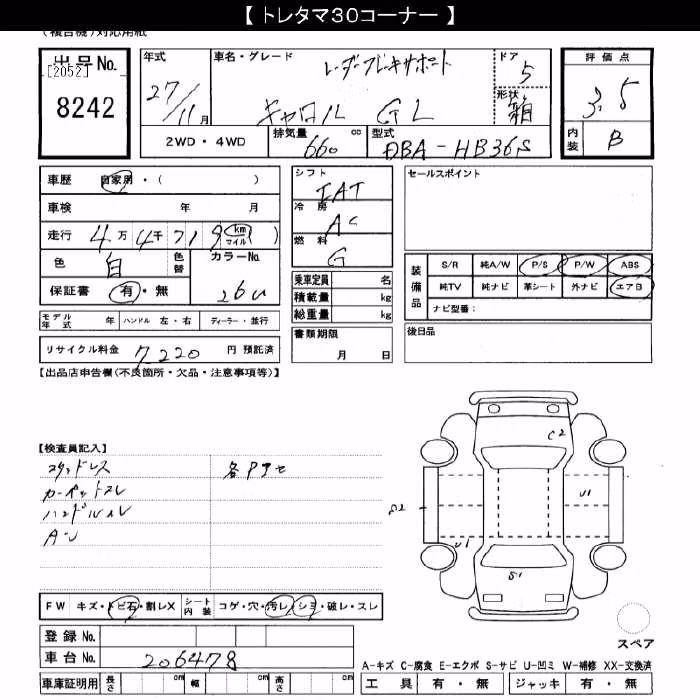 【 トレタマ30コーナー 】
(複合機)対応用紙
出品No.
[2052]
8242
年式 27/11月
車名・グレード レーダーブレーキサポート
キャロル GL
ドア 5
形状 箱
2WD・4WD
排気量 660 cc
型式 DBA-HB36S
評価点
3.5
内装 B
車歴 自家用・( )
車検 年 月
走行 4万4千719 (km マイル)
色 白 色替 カラーNo. 26U
保証書 有・無
シフト IAT
冷房 AC
燃料 G
乗車定員 名
積載量 kg
総重量 kg
セールスポイント
装備品 S/R 純A/W P/S P/W ABS
純TV 純ナビ 革シート 外ナビ エアB
ナビ型番:
モデル年式 年 ハンドル 左・右 ディーラー・並行
書類期限 月 日
後日品
リサイクル料金 7220 円 預託済
【出品店申告欄(不良箇所・欠品・注意事項等)】
【検査員記入】
スタッドレス
各Pアセ
カーペットスレ
ハンドルスレ
A・U
C2
U1
U1
S1
FW キズ・トビ石・割レX シート内装 コゲ・穴・汚レ・シミ・破レ・スレ
登録No.
車台No. 206478
スペア
A-キズ C-腐食 E-エクボ S-サビ U-凹ミ W-補修 XX-交換済
車庫証明用 長さ cm 幅 cm 高さ cm
工具 有・無 ジャッキ 有・無